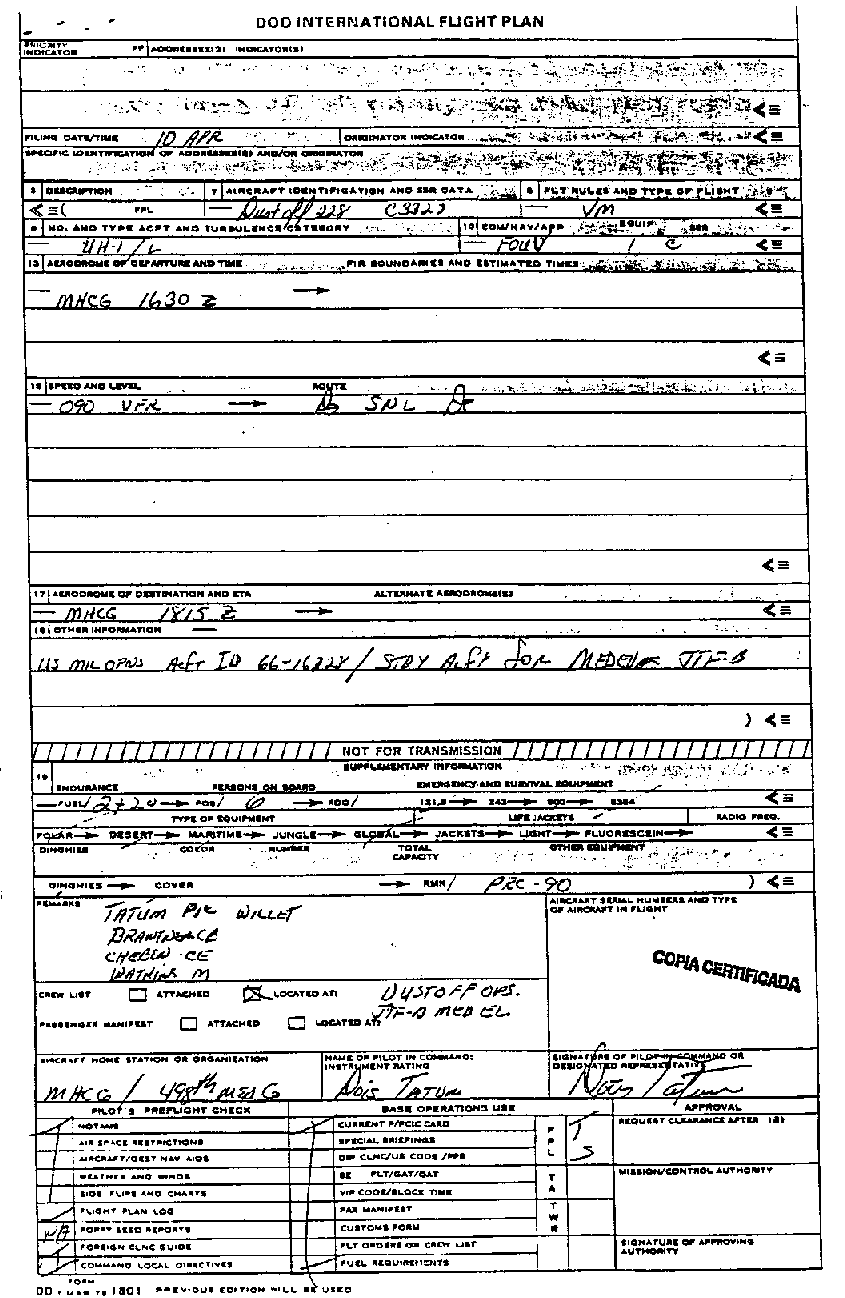 DOD INTERNATIONAL FLIGHT PLAN
PRIORITY INDICATOR FF ADDRESSEE(S) INDICATOR(S)
<≡
FILING DATE/TIME 10 APR ORIGINATOR INDICATOR <≡
SPECIFIC IDENTIFICATION OF ADDRESSEE(S) AND/OR ORIGINATOR
3 DESCRIPTION 7 AIRCRAFT IDENTIFICATION AND SSR DATA 8 FLT RULES AND TYPE OF FLIGHT
<≡( FPL — Dustoff 228 C3323 — VM <≡
9 NO. AND TYPE ACFT AND TURBULENCE CATEGORY 10 COM/NAV/APP EQUIP SSR
— UH-1/L — FOUV / C <≡
13 AERODROME OF DEPARTURE AND TIME FIR BOUNDARIES AND ESTIMATED TIMES
— MHCG 1630 Z →
<≡
15 SPEED AND LEVEL ROUTE
— 090 VFR → SNL
<≡
17 AERODROME OF DESTINATION AND ETA ALTERNATE AERODROME(S)
— MHCG 1815 Z → <≡
18 OTHER INFORMATION —
US MIL OPNS Acft ID 66-16228 / STBY Acft for MEDEVAC JTF-B
) <≡
NOT FOR TRANSMISSION
SUPPLEMENTARY INFORMATION
19
ENDURANCE PERSONS ON BOARD EMERGENCY AND SURVIVAL EQUIPMENT
— FUEL/ 2+20 → POB/ 6 → RDO/ 121.5 → 243 → 500 → 8364 <≡
TYPE OF EQUIPMENT LIFE JACKETS RADIO FREQ.
POLAR → DESERT → MARITIME → JUNGLE → GLOBAL → JACKETS → LIGHT → FLUORESCEIN → <≡
DINGHIES COLOR NUMBER TOTAL CAPACITY OTHER EQUIPMENT
DINGHIES → COVER → RMK/ PRC-90 ) <≡
REMARKS TATUM PIC WILLET
CE
CE
WATKINS M
AIRCRAFT SERIAL NUMBERS AND TYPE OF AIRCRAFT IN FLIGHT
COPIA CERTIFICADA
CREW LIST ATTACHED LOCATED AT: DUSTOFF OPS.
JTF-B MED EL.
PASSENGER MANIFEST ATTACHED LOCATED AT:
AIRCRAFT HOME STATION OR ORGANIZATION NAME OF PILOT IN COMMAND: INSTRUMENT RATING SIGNATURE OF PILOT IN COMMAND OR DESIGNATED REPRESENTATIVE
MHCG / 498th MED C Tatum Tatum
PILOT'S PREFLIGHT CHECK BASE OPERATIONS USE APPROVAL
NOTAMS CURRENT F/PCIC CARD FPL REQUEST CLEARANCE AFTER (Z)
AIR SPACE RESTRICTIONS SPECIAL BRIEFINGS
AIRCRAFT/DEST NAV AIDS DIP CLNC/US CODE /PPR
WEATHER AND WINDS SE FLT/GAT/OAT TA MISSION/CONTROL AUTHORITY
SIDS FLIPS AND CHARTS VIP CODE/BLOCK TIME
FLIGHT PLAN LOG PAX MANIFEST TWR
NA POPPY SEED REPORTS CUSTOMS FORM
FOREIGN CLNC GUIDE FLT ORDERS OR CREW LIST SIGNATURE OF APPROVING AUTHORITY
COMMAND LOCAL DIRECTIVES FUEL REQUIREMENTS
DD FORM 1801 PREVIOUS EDITION WILL BE USED